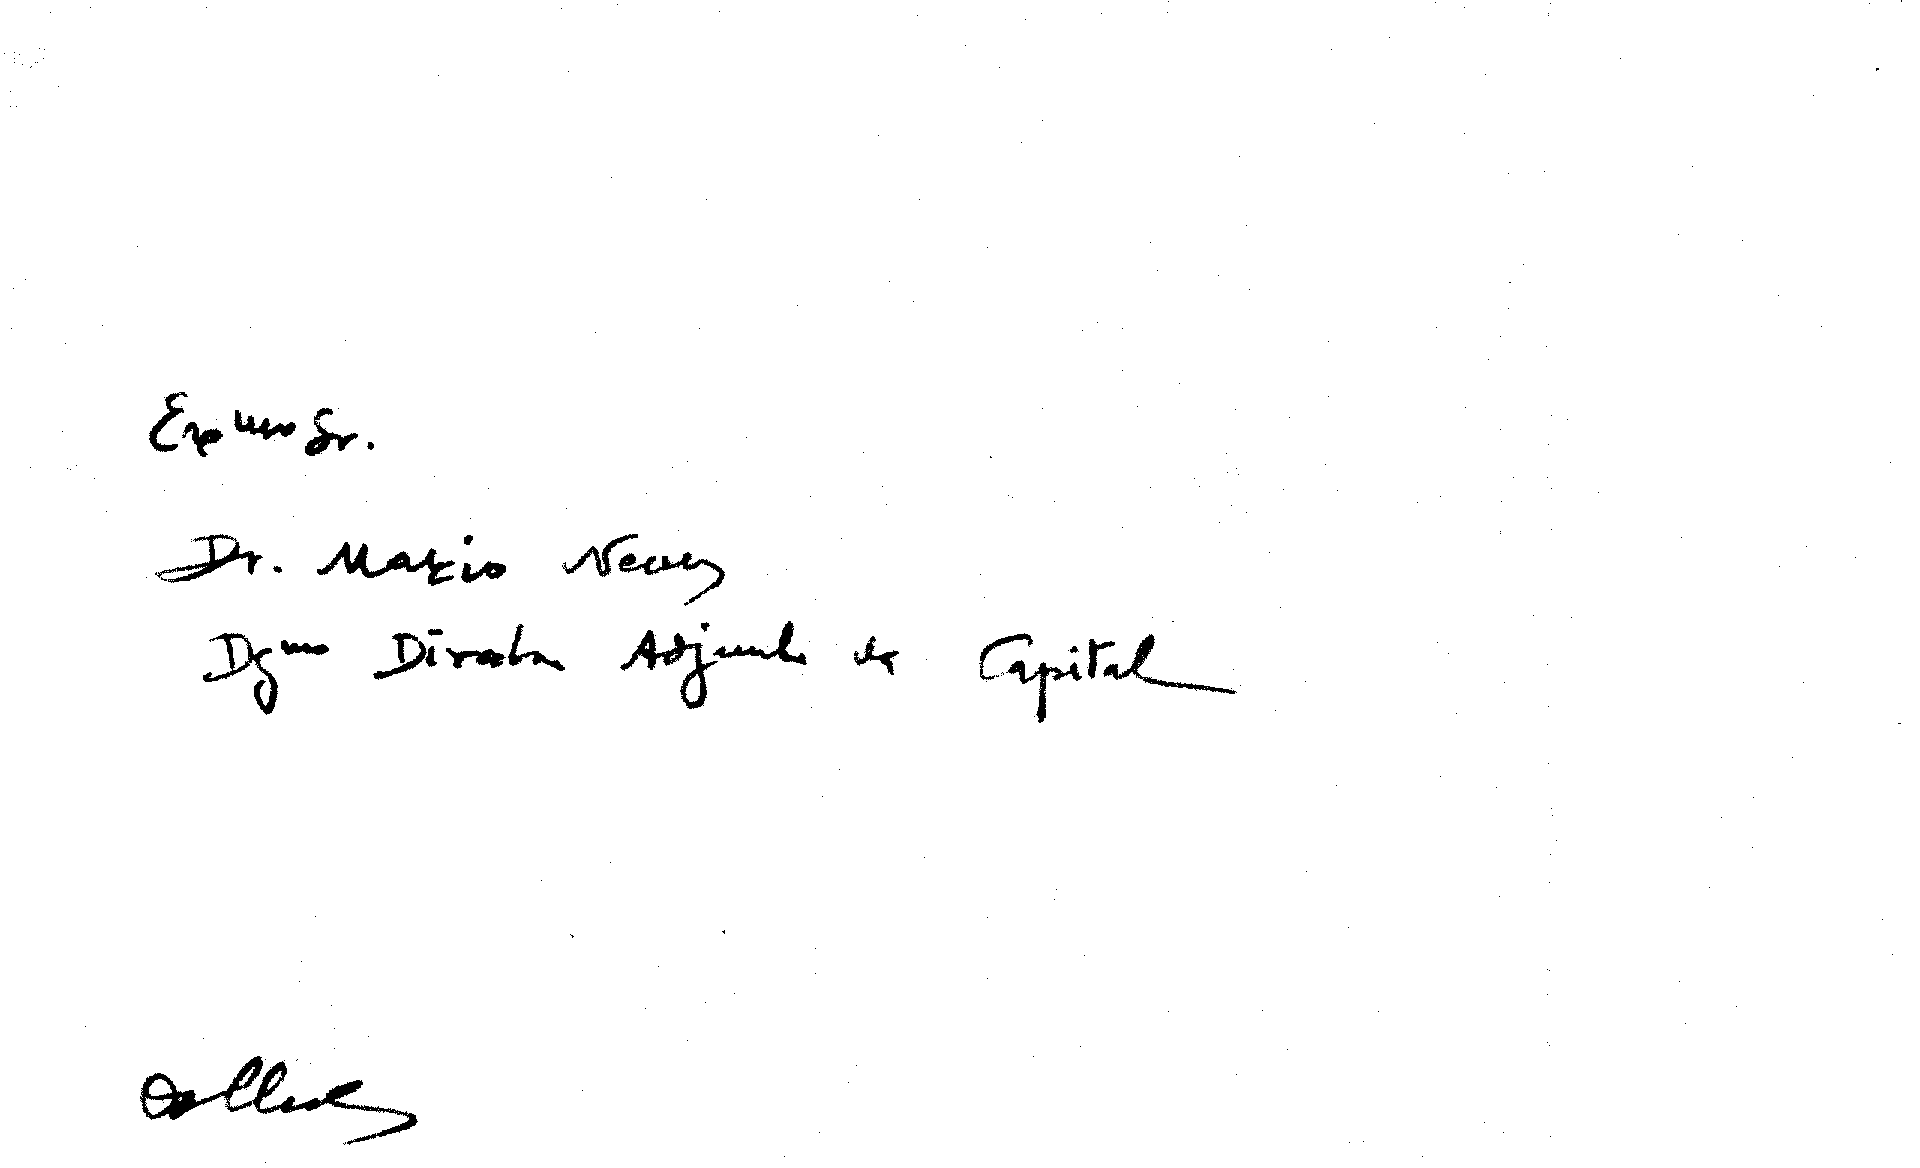 Exmo Sr.
Dr. Mário Neves
Dgmo Director Adjunto de Capital